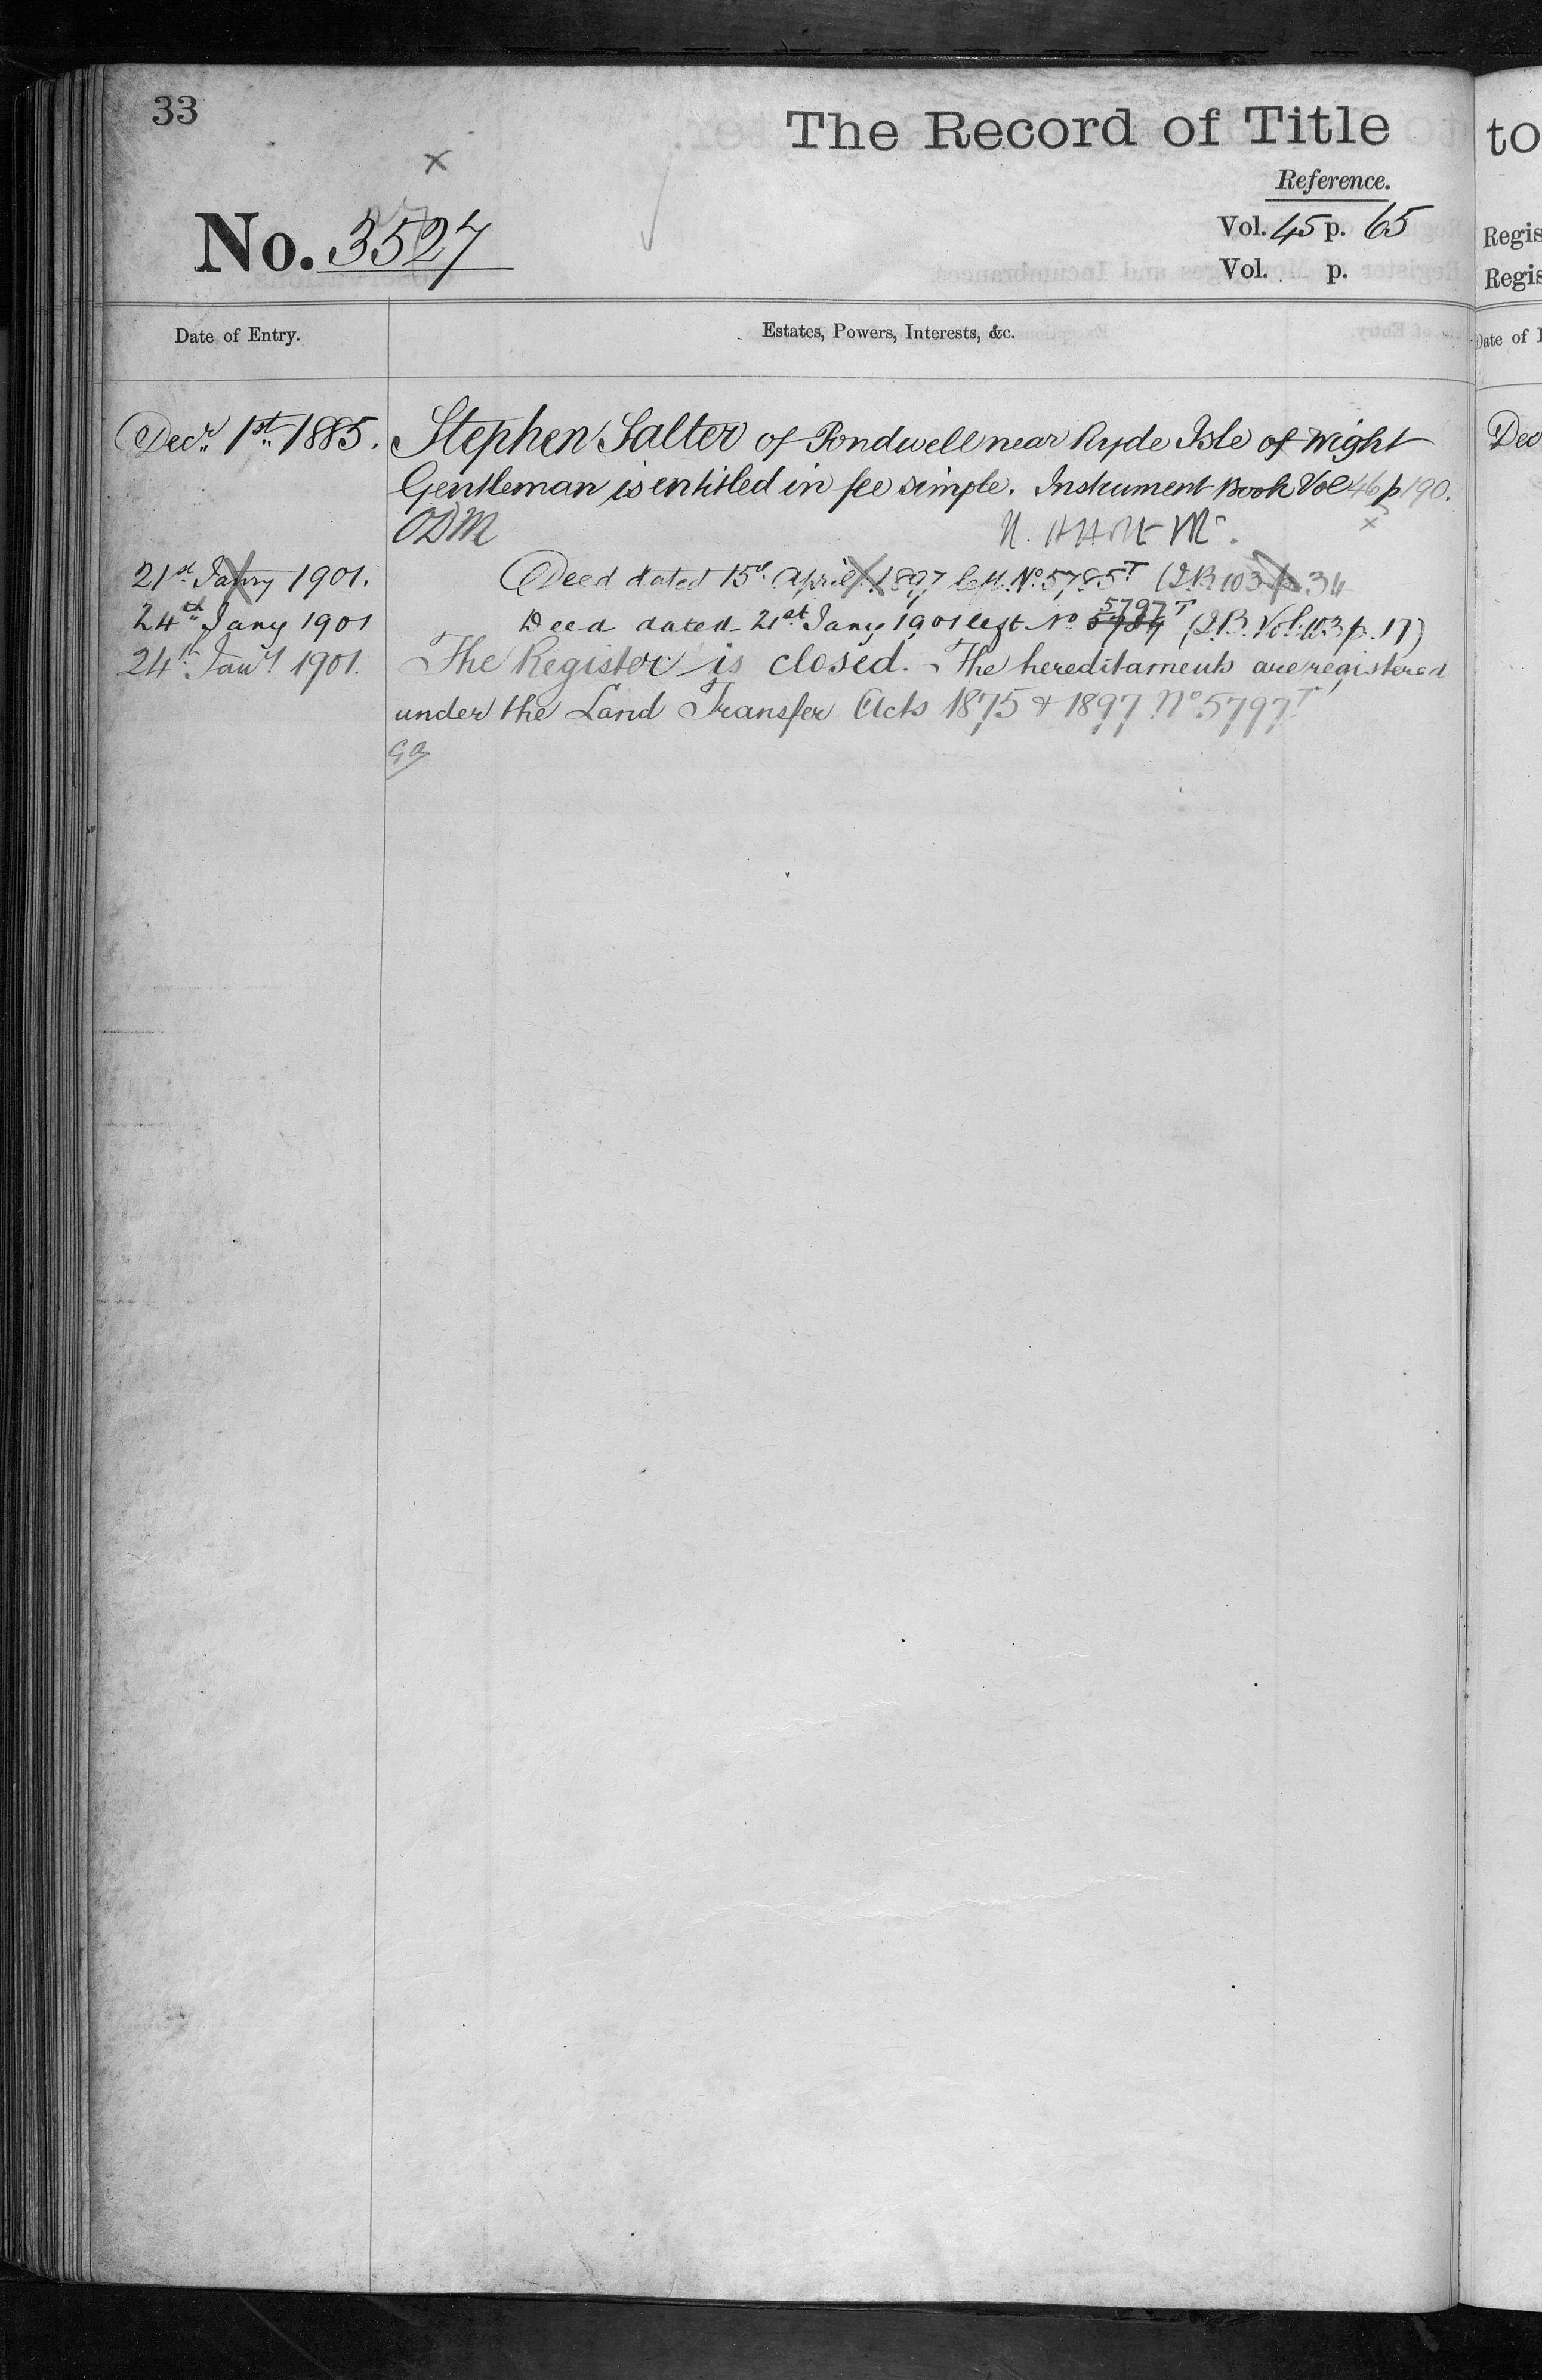 33
The Record of Title
Reference.
No. 3527
Vol. 45 p. 65
Vol. p.
Date of Entry.
Estates, Powers, Interests, &c.
Decr. 1st. 1885. Stephen Salter of Pondwell near Ryde Isle of Wight
Gentleman is entitled in fee simple. Instrument Book Vol 46 p 190.
ODM
21st Janry 1901. Deed dated 15th April 1897 left No. 5785T (I.B. 103 p 34
24th Jany 1901 Deed dated 21st Jany 1901 left No 5797T (I.B. Vol. 103 p. 17)
24th Jany 1901. The Register is closed. The hereditaments are registered
under the Land Transfer Acts 1875 & 1897 No 5797T
to
Regis
Regis
Date of
Dec